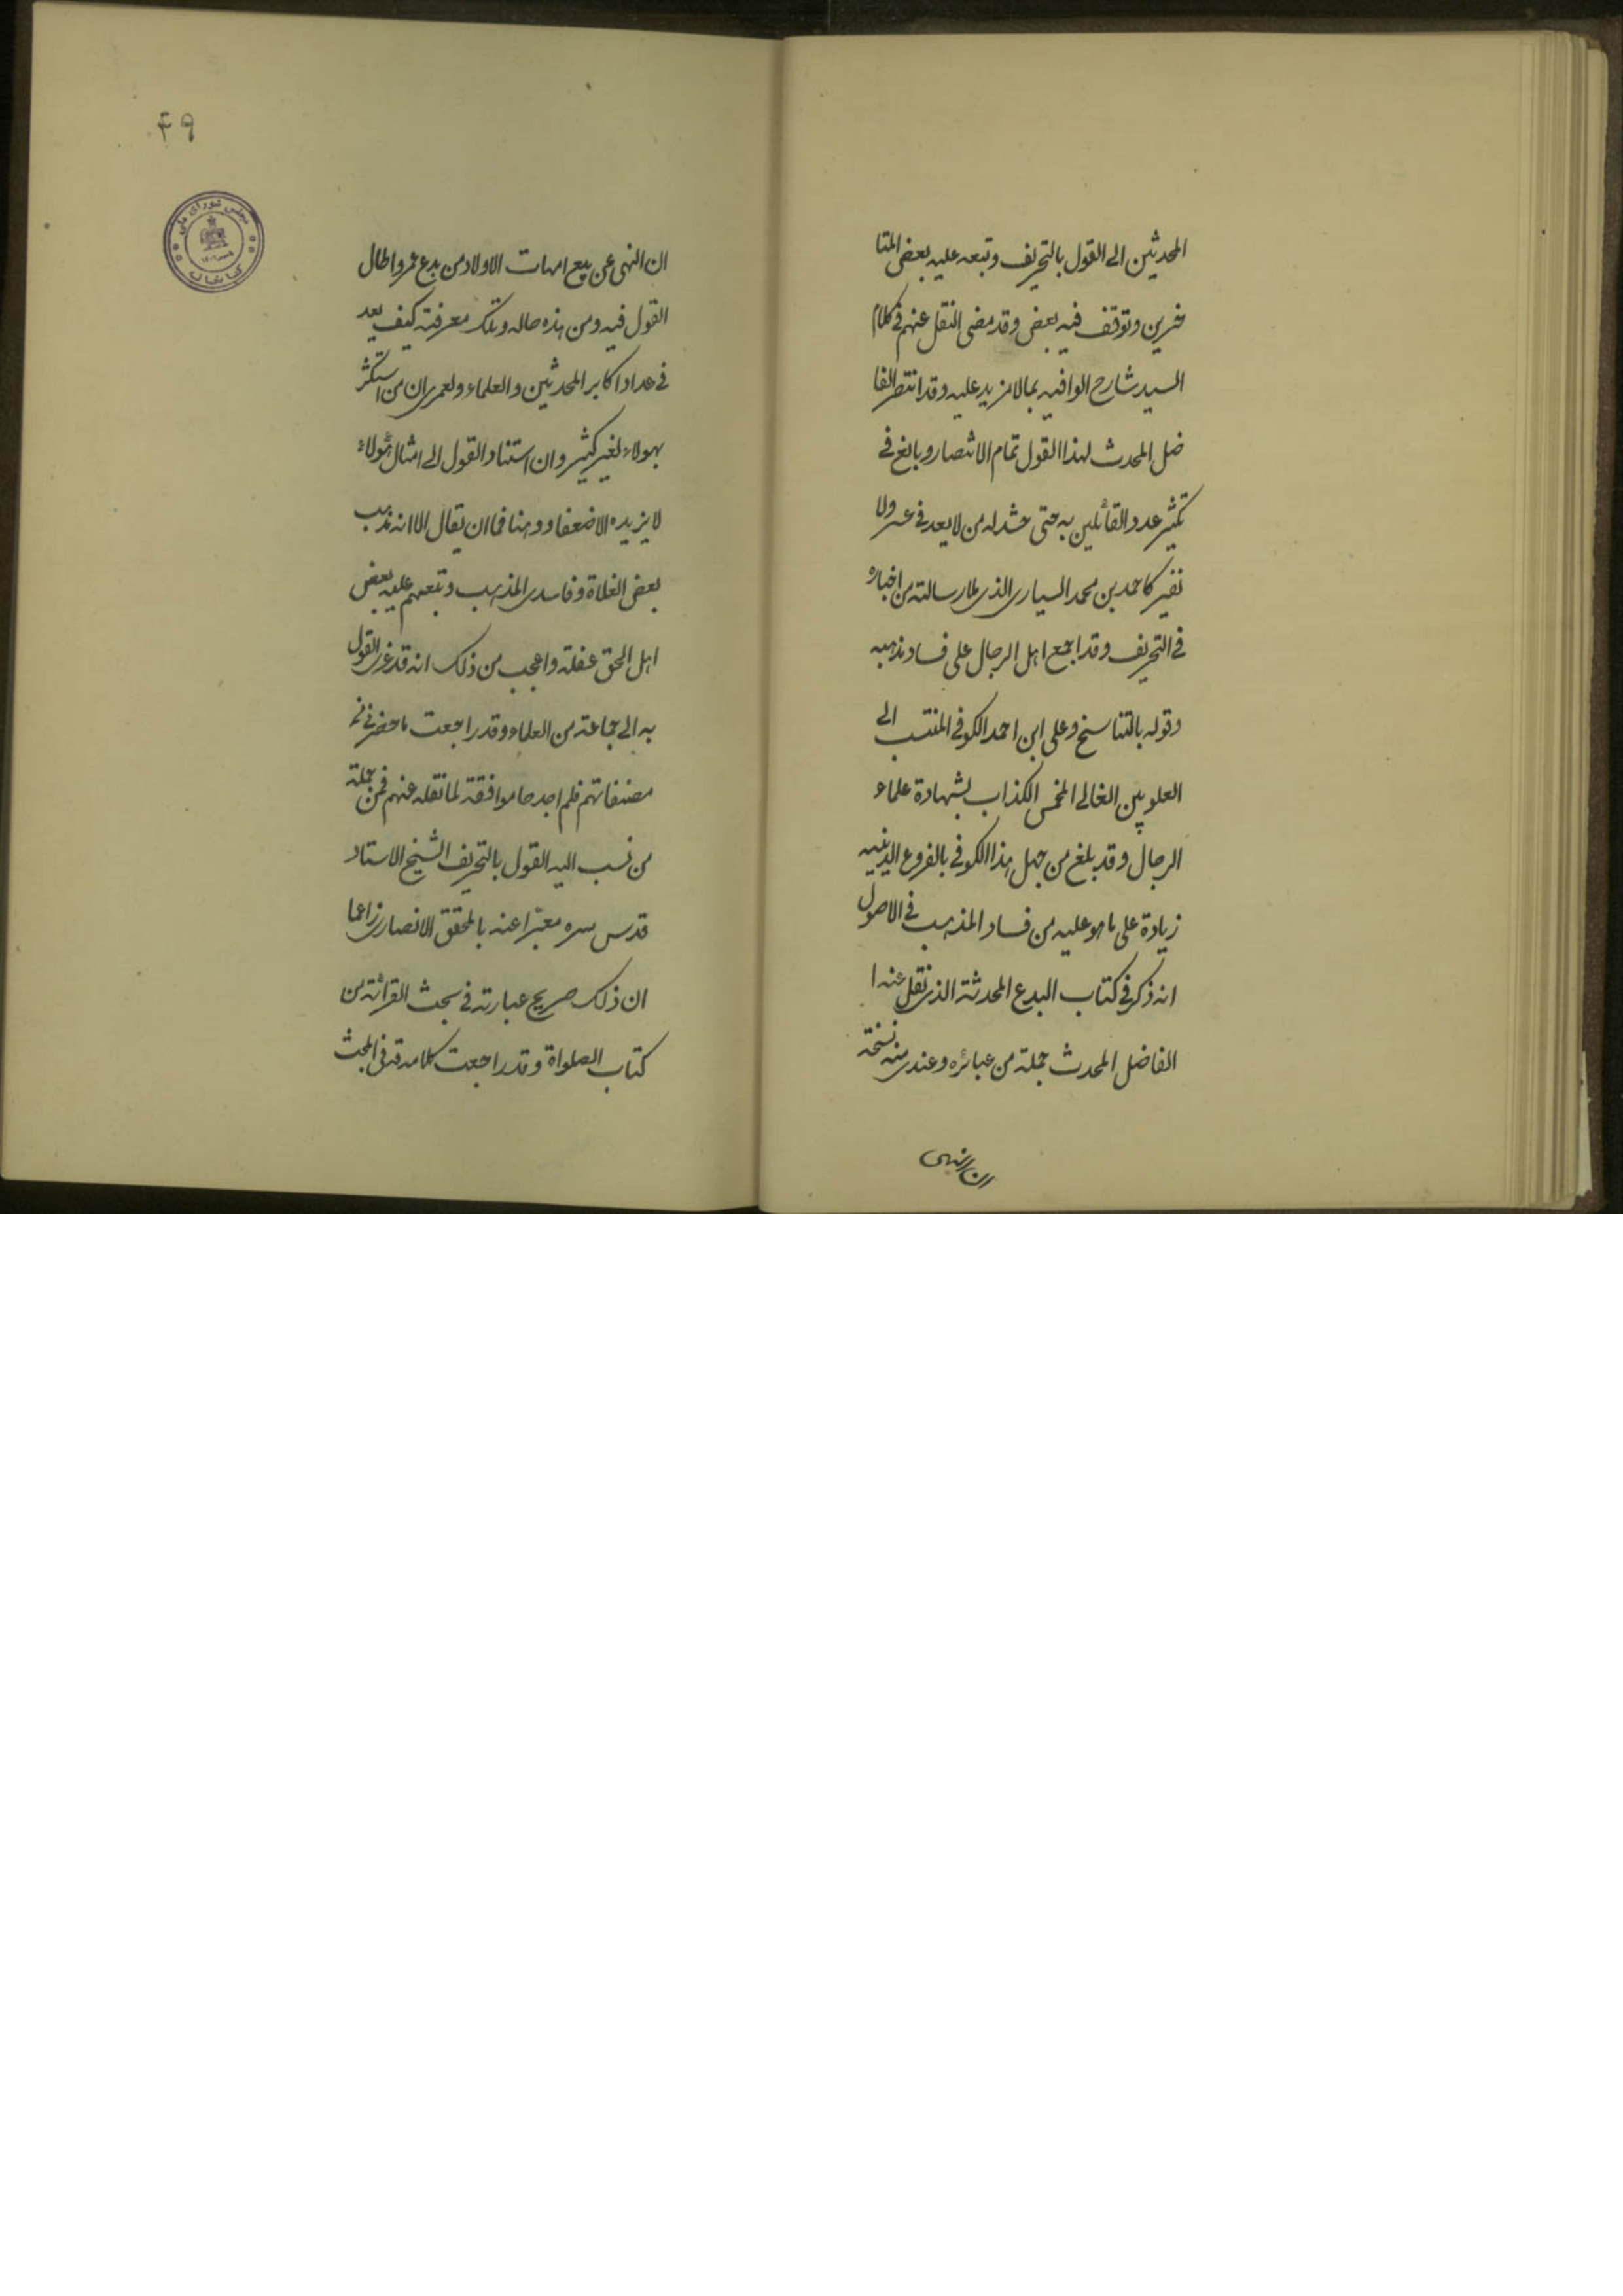 المحدثين الى القول بالتحريف وتبعه عليه بعض المتا
خرين وتوقف فيه بعض وقد مضى النقل عنهم فى كلام
السيد شارح الوافيه بما لا مزيد عليه وقد انتصر الفا
ضل المحدث لهذا القول تمام الانتصار وبالغ فى
تكثير عدد القائلين به حتى حشد له من لا يعد فى عير ولا
نفير كاحمد بن محمد السيارى الذى ملا رسالته من اخباره
فى التحريف وقد اجمع اهل الرجال على فساد مذهبه
وقوله بالتناسخ وعلى ابن احمد الكوفى المنتسب الى
العلويين الغالى المخمس الكذاب بشهادة علماء
الرجال وقد بلغ من جهل هذا الكوفى بالفروع الدينيه
زيادة على ما هو عليه من فساد المذهب فى الاصول
انه ذكر فى كتاب البدع المحدثة الذى نقل عنه ا
الفاضل المحدث جملة من عبائره وعندى منه نسخة
ان النهى
۴۹
ان النهى عن بيع امهات الاولاد من بدع عمر واطال
القول فيه ومن هذه حاله وتلك معرفته كيف يعد
فى عداد اكابر المحدثين والعلماء ولعمرى ان من استكثر
بهولاء لغير كثير وان استناد القول الى امثال هؤلاء
لا يزيده الا ضعفا ووهنا فما ان يقال الا انه ذهب
بعض الغلاة وفاسدى المذهب وتبعهم عليه بعض
اهل الحق غفلة واعجب من ذلك انه قد عزى القول
به الى جماعة من العلماء وقد راجعت ما حضرنى من
مصنفاتهم فلم اجدها موافقة لما نقله عنهم فمن جملة
من نسب اليه القول بالتحريف الشيخ الاستاد
قدس سره معبّرا عنه بالمحقق الانصارى زاعما
ان ذلك صريح عبارته فى بحث القرائة من
كتاب الصلواة وقد راجعت كلامه قده فى المبحث
مجلس شورای ملی